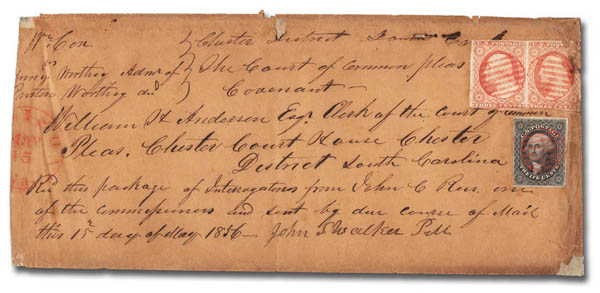 Wm Cox } Chester District
Worthy Admr of } The Court of Common pleas
Worthy dcd } Covenant —
William H Anderson Esqr Clerk of the court of common
Pleas. Chester Court House Chester
District South Carolina
Rcd this package of Interogatories from John C Rus one
of the commissioners and sent by due course of Mail
this 15th day of May 1856 — John S Walker P.M
U.S. POSTAGE
THREE CENTS
THREE CENTS
U.S. POSTAGE
TWELVE CENTS